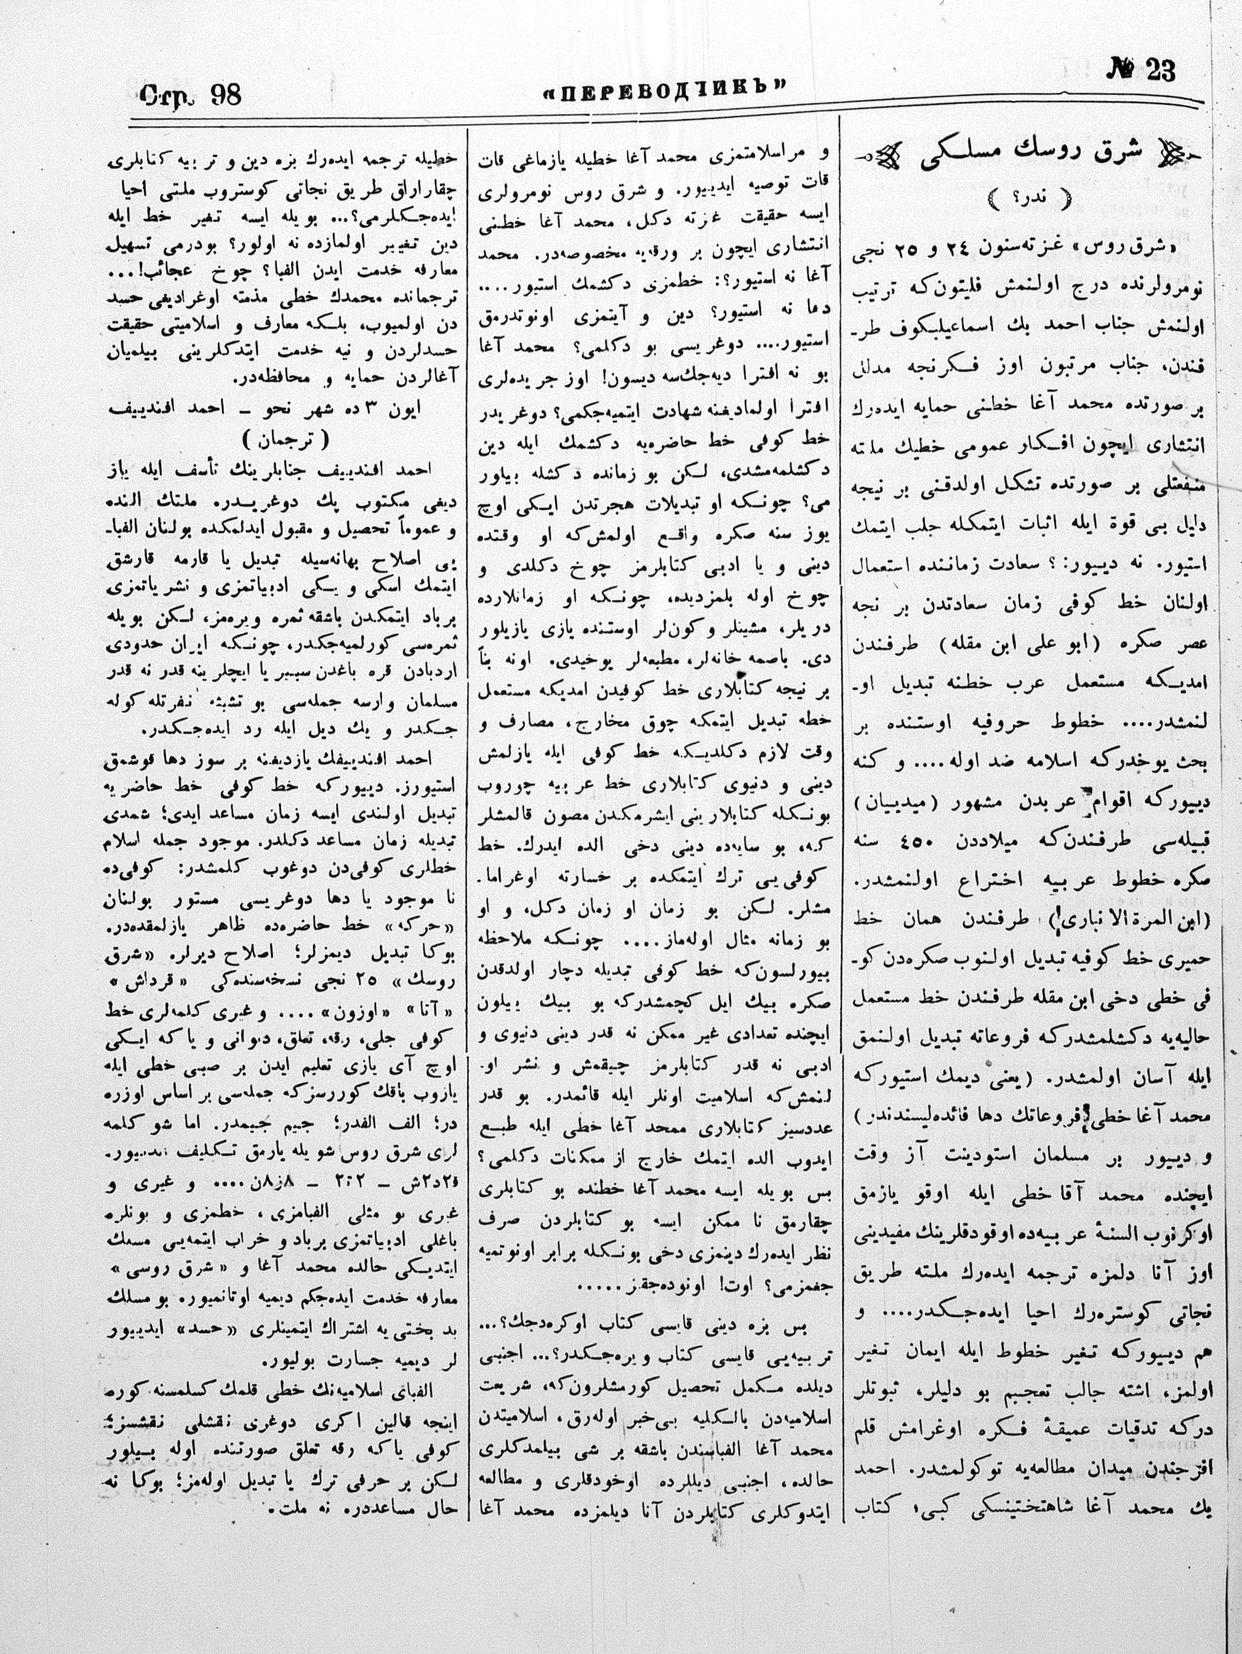 Стр. 98
«ПЕРЕВОДЧИКЪ»
№ 23
شرق روسك مسلكى
( ندر؟ )
«شرق روس» غزته‌سنون ٢٤ و ٢٥ نجى
نومرولرنده درج اولنمش فليتون‌كه ترتيب
اولنمش جناب احمد بك اسماعيلبكوف طر-
فندن، جناب مرتبون اوز فكرنجه مدلل
بر صورتده محمد آغا خطنى حمايه ايده‌رك
انتشارى ايچون افكار عمومى خطيك ملته
منفعتلى بر صورتده تشكل اولدقنى بر نيجه
دليل بى قوة ايله اثبات ايتمكله جلب ايتمك
استيور. نه دييور: ؟ سعادت زماننده استعمال
اولنان خط كوفى زمان سعادتدن بر نجه
عصر صكره (ابو على ابن مقله) طرفندن
امديكه مستعمل عرب خطنه تبديل او-
لنمشدر.... خطوط حروفيه اوستنده بر
بحث يوخدركه اسلامه ضد اوله.... و كنه
دييوركه اقوام عربدن مشهور (ميدييان)
قبيله‌سى طرفندن‌كه ميلاددن ٤٥٠ سنه
صكره خطوط عربيه اختراع اولنمشدر.
(ابن المرة الانبارى!) طرفندن همان خط
حميرى خط كوفيه تبديل اولنوب صكره‌دن كو-
فى خطى دخى ابن مقله طرفندن خط مستعمل
حاليه‌يه دكشلمشدركه فروعاته تبديل اولنمق
ايله آسان اولمشدر. (يعنى ديمك استيوركه
محمد آغا خطى فروعاتك دها فائده‌ليسندندر)
و دييور بر مسلمان استودينت آز وقت
ايچنده محمد آقا خطى ايله اوقو يازمق
اوكرنوب السنهٔ عربيه‌ده اوقودقلرينك مفيدينى
اوز آنا دلمزه ترجمه ايده‌رك ملته طريق
نجاتى كوستره‌رك احيا ايده‌جكدر.... و
هم دييوركه تغير خطوط ايله ايمان تغير
اولمز، اشته جالب تعجبم بو دليلر، ثبوتلر
دركه تدقيات عميقهٔ فكره اوغرامش قلم
افزجندن ميدان مطالعه‌يه توكولمشدر. احمد
بك محمد آغا شاهتختينسكى كبى، كتاب
و مراسلامتمزى محمد آغا خطيله يازماغى قات
قات توصيه ايدييور. و شرق روس نومرولرى
ايسه حقيقت غزته دكل، محمد آغا خطنى
انتشارى ايچون بر ورقه‌يه مخصوصه‌در. محمد
آغا نه استيور؟: خطمزى دكشمك استيور....
دها نه استيور؟ دين و آيتمزى اونوتدرمق
استيور.... دوغريسى بو دكلمى؟ محمد آغا
بو نه افترا ديه‌جك‌سه ديسون! اوز جريده‌لرى
افترا اولماديغنه شهادت ايتميه‌جكمى؟ دوغريدر
خط كوفى خط حاضره‌يه دكشمك ايله دين
دكشلمه‌مشدى، لكن بو زمانده دكشله بيلور
مى؟ چونكه او تبديلات هجرتدن ايكى اوچ
يوز سنه صكره واقع اولمش‌كه او وقتده
دينى و يا ادبى كتابلرمز چوخ دكلدى و
چوخ اوله بلمزديده، چونكه او زمانلارده
دريلر، مشينلر و كون‌لر اوستنده يازى يازيلور
دى. باصمه خانه‌لر، مطبعه‌لر يوخيدى. اونه بناً
بر نيجه كتابلارى خط كوفيدن امديكه مستعمل
خطه تبديل ايتمكه چوق مخارج، مصارف و
وقت لازم دكلديكه خط كوفى ايله يازلمش
دينى و دنيوى كتابلارى خط عربيه چوروب
بونكله كتابلارينى ايشرمكدن مصون قالمشلر
كه، بو سايه‌ده دينى دخى الده ايدرك. خط
كوفى‌يى ترك ايتمكده بر خسارته اوغراما-
مشلر. لكن بو زمان او زمان دكل، و او
بو زمانه مثال اوله‌ماز.... چونكه ملاحظه
بيورلسون‌كه خط كوفى تبديله دچار اولدقدن
صكره بيك ايل كچمشدركه بو بيك ييلون
ايچنده تعدادى غير ممكن نه قدر دينى دنيوى و
ادبى نه قدر كتابلرمز چيقمش و نشر او-
لنمش‌كه اسلاميت اونلر ايله قائمدر. بو قدر
عددسيز كتابلارى ممحد آغا خطى ايله طبع
ايدوب الده ايتمك خارج از ممكنات دكلمى؟
بس بويله ايسه محمد آغا خطنده بو كتابلرى
چقارمق نا ممكن ايسه بو كتابلردن صرف
نظر ايده‌رك دينمزى دخى بونكله برابر اونوتميه
جغمزمى؟ اوت! اونوده‌جقز.....
بس بزه دينى قايسى كتاب اوكره‌دجك؟...
تربيه‌يى قايسى كتاب ويره‌جكدر؟... اجنبى
ديلده مكمل تحصيل كورمشلرون‌كه، شريعت
اسلاميه‌دن بالكليه بى‌خبر اوله‌رق، اسلاميتدن
محمد آغا الفباسندن باشقه بر شى بيلمدكلرى
حالده، اجنبى ديللرده اوخودقلرى و مطالعه
ايتدوكلرى كتابلردن آنا ديلمزده محمد آغا
خطيله ترجمه ايده‌رك بزه دين و تربيه كتابلرى
چقاراراق طريق نجاتى كوستروب ملتى احيا
ايده‌جكلرمى؟... بويله ايسه تغير خط ايله
دين تغيير اولمازده نه اولور؟ بودرمى تسهيل
معارفه خدمت ايدن الفبا؟ چوخ عجائب!...
ترجمانده محمدك خطى مذمته اوغراديغى حسد
دن اولميوب، بلكه معارف و اسلاميتى حقيقت
حسدلردن و نيه خدمت ايتدكلرينى بيلميان
آغالردن حمايه و محافظه‌در.
ايون ٣ده شهر نحو - احمد افندييف
( ترجمان )
احمد افندييف جنابلرينك تأسف ايله ياز
ديغى مكتوب پك دوغريدر. ملتك النده
و عموماً تحصيل و مقبول ايدلمكده بولنان الفبا-
يى اصلاح بهانه‌سيله تبديل يا قارمه قارشق
ايتمك اسكى و يكى ادبياتمزى و نشرياتمزى
برباد ايتمكدن باشقه ثمره ويره‌مز، لكن بويله
ثمره‌سى كورلميه‌جكدر، چونكه ايران حدودى
اردبادن قره باغدن سيبر يا ايچلرينه قدر نه قدر
مسلمان وارسه جمله‌سى بو تشبثه نفرتله كوله
جكدر و يك ديل ايله رد ايده‌جكدر.
احمد افندييفك يازديغنه بر سوز دها قوشمق
استيورز. دييوركه خط كوفى خط حاضريه
تبديل اولندى ايسه زمان مساعد ايدى؛ شمدى
تبديله زمان مساعد دكلدر. موجود جمله اسلام
خطلرى كوفى‌دن دوغوب كلمشدر: كوفى‌ده
نا موجود يا دها دوغريسى مستور بولنان
«حركه» خط حاضره‌ده ظاهر يازلمقده‌در.
بوكا تبديل ديمزلر؛ اصلاح ديرلر. «شرق
روسك» ٢٥ نجى نسخه‌سنده‌كى «قرداش»
«آنا» «اوزون».... و غيرى كلمه‌لرى خط
كوفى جلى، رقه، تعلق، ديوانى و ياكه ايكى
اوچ آى يازى تعليم ايدن بر صبى خطى ايله
يازوب باقك كوررسزكه جمله‌سى بر اساس اوزره
در؛ الف الفدر؛ جيم جيمدر. اما شو كلمه
لرى شرق روس شويله يازمق تكليف ايدييور.
و غيرى و
غيرى بو مثلى الفبامزى، خطمزى و بونلره
باغلى ادبياتمزى برباد و خراب ايتمه‌يى مسلك
ايتديكى حالده محمد آغا و «شرق روسى»
معارفه خدمت ايده‌جكم ديميه اوتانميور. بو مسلك
بد بختى يه اشتراك ايتمينلرى «حسد» ايدييور
لر ديميه جسارت بوليور.
الفباى اسلاميه‌نك خطى قلمك كسلمسنه كوره
اينجه قالين اكرى دوغرى نقشلى نقشسز؛
كوفى ياكه رقه تعلق صورتنده اوله بيلور
لكن بر حرفى ترك يا تبديل اوله‌مز؛ بوكا نه
حال مساعددر. نه ملت.